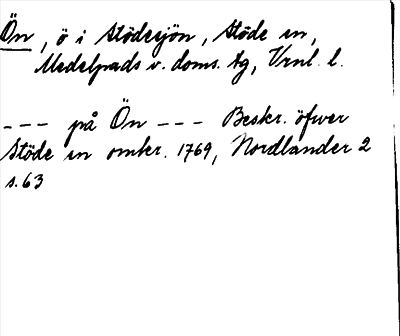 Ön, ö i Stödesjön, Stöde sn,
Medelpads v. doms. tg, Vrnl. l.
--- på Ön --- Beskr. öfwer
Stöde sn omkr. 1769, Nordlander 2
s. 63